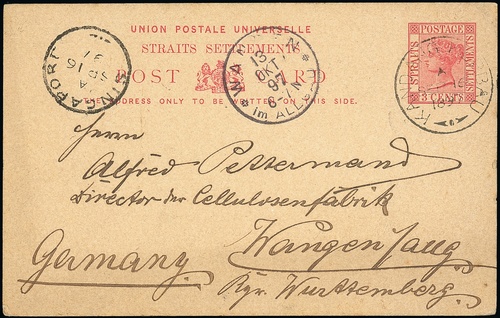 UNION POSTALE UNIVERSELLE
STRAITS SETTLEMENTS
POST CARD
THE ADDRESS ONLY TO BE WRITTEN ON THIS SIDE.
SINGAPORE
A
SP 16
97
WANGEN
13 OKT
97
6-7 N
im ALL.
POSTAGE
STRAITS
SETTLEMENTS
3 CENTS
Herrn
Alfred Pettermand
Director der Cellulosenfabrik
Wangen
Germany
Kgr. Wurttemberg